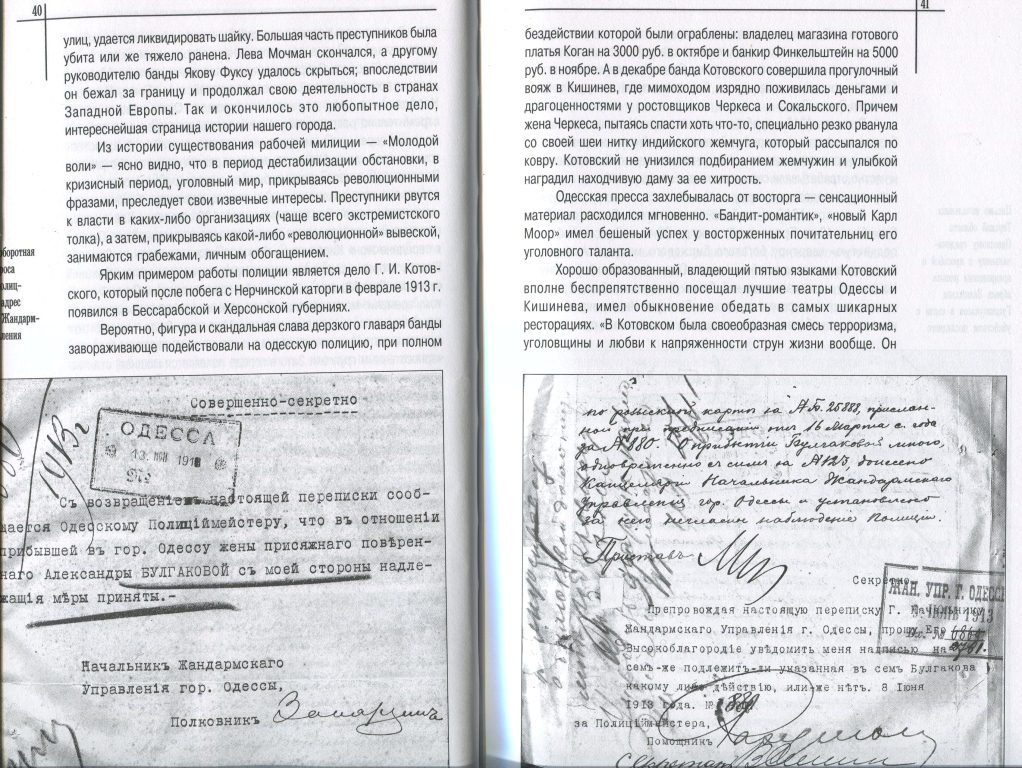 40
улиц, удается ликвидировать шайку. Большая часть преступников была
убита или же тяжело ранена. Лева Мочман скончался, а другому
руководителю банды Якову Фуксу удалось скрыться; впоследствии
он бежал за границу и продолжал свою деятельность в странах
Западной Европы. Так и окончилось это любопытное дело,
интереснейшая страница истории нашего города.
Из истории существования рабочей милиции — «Молодой
воли» — ясно видно, что в период дестабилизации обстановки, в
кризисный период, уголовный мир, прикрываясь революционными
фразами, преследует свои извечные интересы. Преступники рвутся
к власти в каких-либо организациях (чаще всего экстремистского
толка), а затем, прикрываясь какой-либо «революционной» вывеской,
занимаются грабежами, личным обогащением.
Ярким примером работы полиции является дело Г. И. Котов-
ского, который после побега с Нерчинской каторги в феврале 1913 г.
появился в Бессарабской и Херсонской губерниях.
Вероятно, фигура и скандальная слава дерзкого главаря банды
завораживающе подействовали на одесскую полицию, при полном
оборотная
роса
олиц-
адрес
Жандарм-
ления
Совершенно-секретно
1913 г
ОДЕССА
13
Съ возвращеніемъ настоящей переписки сооб-
щается Одесскому Полиціймейстеру, что въ отношеніи
прибывшей въ гор. Одессу жены присяжнаго повѣрен-
наго Александры БУЛГАКОВОЙ съ моей стороны надле-
жащія мѣры приняты.-
Начальникъ Жандармскаго
Управленія гор. Одессы,
Полковникъ
41
бездействии которой были ограблены: владелец магазина готового
платья Коган на 3000 руб. в октябре и банкир Финкельштейн на 5000
руб. в ноябре. А в декабре банда Котовского совершила прогулочный
вояж в Кишинев, где мимоходом изрядно поживилась деньгами и
драгоценностями у ростовщиков Черкеса и Сокальского. Причем
жена Черкеса, пытаясь спасти хоть что-то, специально резко рванула
со своей шеи нитку индийского жемчуга, который рассыпался по
ковру. Котовский не унизился подбиранием жемчужин и улыбкой
наградил находчивую даму за ее хитрость.
Одесская пресса захлебывалась от восторга — сенсационный
материал расходился мгновенно. «Бандит-романтик», «новый Карл
Моор» имел бешеный успех у восторженных почитательниц его
уголовного таланта.
Хорошо образованный, владеющий пятью языками Котовский
вполне беспрепятственно посещал лучшие театры Одессы и
Кишинева, имел обыкновение обедать в самых шикарных
ресторациях. «В Котовском была своеобразная смесь терроризма,
уголовщины и любви к напряженности струн жизни вообще. Он
по розыскной карты за № 25888, прислан-
ной при предписании отъ 16 Марта с. года
за № 880. О прибытіи Булгаковой мною,
одновременно съ симъ за № 123, донесено
Канцеляріи Начальника Жандармскаго
Управленія гор. Одессы и установлено
за нею негласное наблюденіе полиціи.
Приставъ
Секретно
ЖАН. УПР. Г. ОДЕССЫ
ІЮНЬ 1913
Препровождая настоящую переписку Г. Начальнику
Жандармскаго Управленія г. Одессы, прошу Его
Высокоблагородіе увѣдомить меня надписью на
семъ-же подлежитъ-ли указанная въ семъ Булгакова
какому либо дѣйствію, или-же нѣтъ. 8 Іюня
1913 года. №
за Полиціймейстера,
Помощникъ
Секретарь